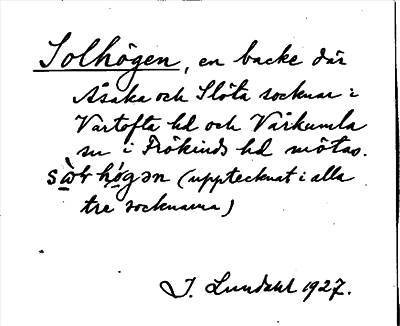 Solhögen, en backe där
Åsaka och Slöta socknar i
Vartofta hd och Vårkumla
sn i Frökinds hd mötas.
högən (upptecknat i alla
tre socknarna)
I. Lundahl 1927.